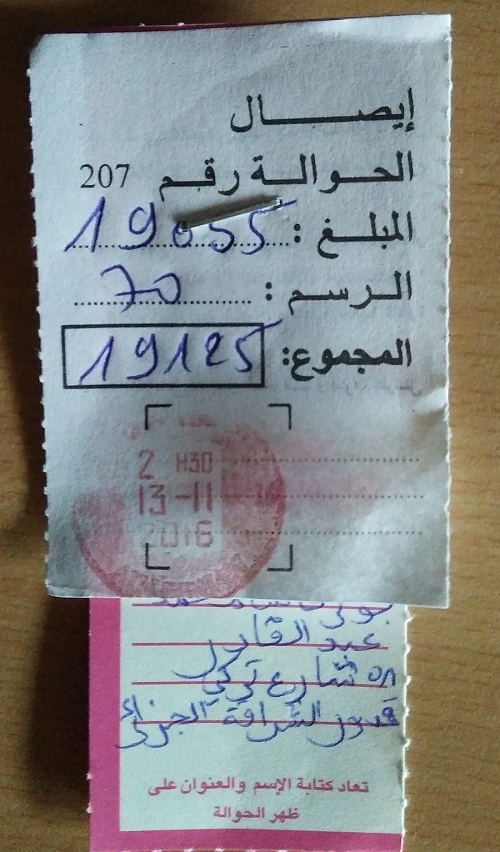 إيصال
الحوالة رقم 207
المبلغ : 19055
الرسم : 70
المجموع: 19125
2 H30
13-11
2016
عبد القادر
شارع تركي
قدور الشراقة الجزائر
تعاد كتابة الإسم والعنوان على
ظهر الحوالة